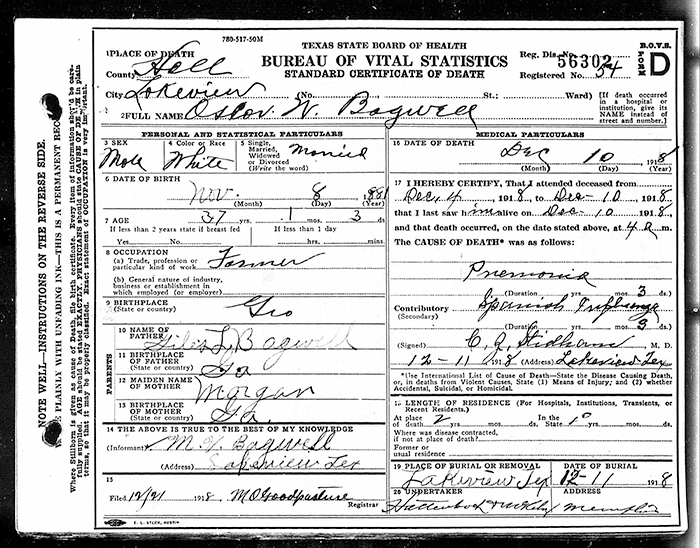 780-517-50M
TEXAS STATE BOARD OF HEALTH
BUREAU OF VITAL STATISTICS
STANDARD CERTIFICATE OF DEATH
Reg. Dis. No. 56302
Registered No. 54
B.O.V.S.
FORM D
1 PLACE OF DEATH
County Hall
City Lakeview (No. St.; Ward)
[If death occurred in a hospital or institution, give its NAME instead of street and number.]
2 FULL NAME Oscar W. Bagwell
PERSONAL AND STATISTICAL PARTICULARS
3 SEX Male
4 Color or Race White
5 Single, Married, Widowed or Divorced (Write the word) Married
6 DATE OF BIRTH
Nov. 8 1881
(Month) (Day) (Year)
7 AGE 37 yrs. 1 mos. 3 ds
If less than 2 years state if breast fed
Yes No
If less than 1 day
hrs. min.
8 OCCUPATION
(a) Trade, profession or particular kind of work Farmer
(b) General nature of industry, business or establishment in which employed (or employer)
9 BIRTHPLACE
(State or country) Geo
PARENTS
10 NAME OF FATHER Giles L. Bagwell
11 BIRTHPLACE OF FATHER
(State or country) Ga
12 MAIDEN NAME OF MOTHER Morgan
13 BIRTHPLACE OF MOTHER
(State or country) Ga.
14 THE ABOVE IS TRUE TO THE BEST OF MY KNOWLEDGE
(Informant) M. V. Bagwell
(Address) Lakeview Tex
15
Filed 12/21 1918 M O Goodpasture
Registrar
E. L. STECK, AUSTIN
MEDICAL PARTICULARS
16 DATE OF DEATH
Dec 10 1918
(Month) (Day) (Year)
17 I HEREBY CERTIFY, That I attended deceased from
Dec, 4, 1918, to Dec-10 1918
that I last saw him alive on Dec-10 1918
and that death occurred, on the date stated above, at 4 a m.
The CAUSE OF DEATH* was as follows:
Pnemonia
(Duration) yrs. mos. 3 ds.
Contributory Spanish Influenza
(Secondary)
(Duration) yrs. mos. 9 ds.
(Signed) M. D.
12-11 1918 (Address) Lakeview Tex
*Use International List of Causes of Death—State the Disease Causing Death, or, in deaths from Violent Causes, State (1) Means of Injury; and (2) whether Accidental, Suicidal, or Homicidal.
18 LENGTH OF RESIDENCE (For Hospitals, Institutions, Transients, or Recent Residents.)
At place of death 2 yrs. mos. ds.
In the State 10 yrs. mos. ds.
Where was disease contracted, if not at place of death?
Former or usual residence
19 PLACE OF BURIAL OR REMOVAL
Lakeview Tex
DATE OF BURIAL
12-11 1918
20 UNDERTAKER
ADDRESS
Memphis
NOTE WELL—INSTRUCTIONS ON THE REVERSE SIDE.
PLAINLY WITH UNFADING INK—THIS IS A PERMANENT RECO
Where Stillborn is given as cause of death, file birth certificate. Every item of information should be carefully supplied. AGE should be stated EXACTLY. PHYSICIANS should state CAUSE OF DEATH in plain terms, so that it may be properly classified. Exact statement of OCCUPATION is very important.